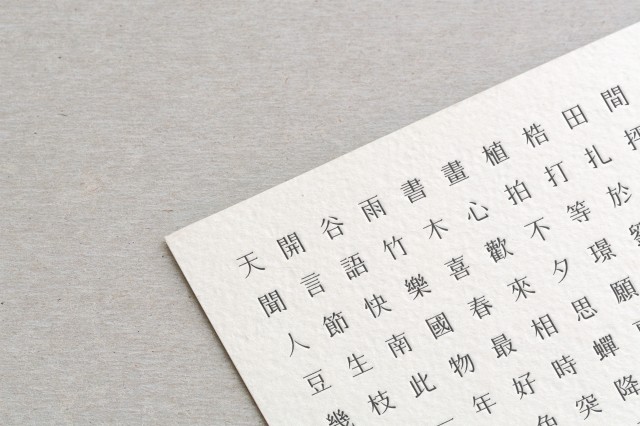 天開谷雨書畫植梏田間
聞言語竹木心拍打扎
人節快樂喜歡不等於
豆生南國春來夕璟
幾枝此物最相思願
年好時蟬
突降